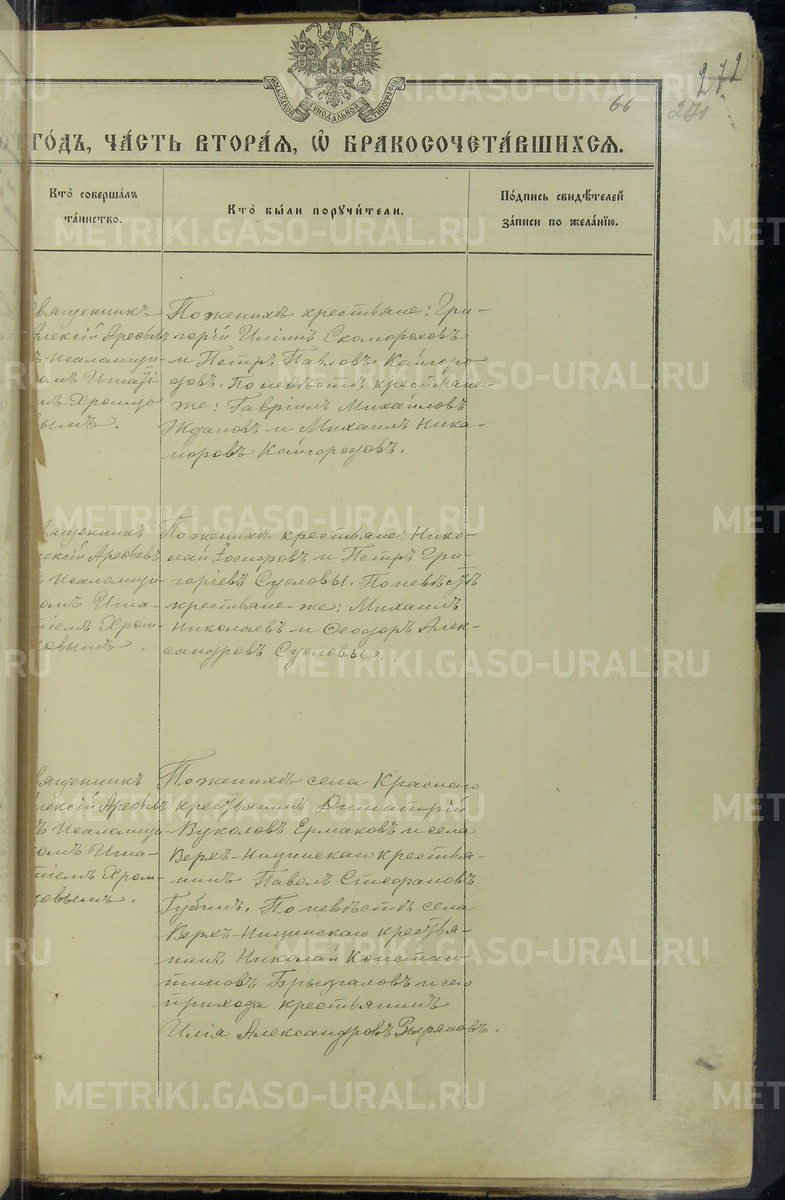 272
66
271
МОСКОВСКОЙ СѴНОДАЛЬНОЙ ТИПОГРАФІИ
ГО́ДЪ, ЧА́СТЬ ВТОРА́Ѧ, Ѽ БРАКОСОЧЕТА́ВШИХСѦ.
Кто̀ соверша́лъ
та́инство.
Кто̀ бы́ли поручи́тели.
По́дпись свидѣ́телей
за́писи по жела́нїю.
вященникъ
Алексій Арефьевъ
ъ Псаломщи-
омъ Игнаті
мъ Хромцо
вымъ.
По женихѣ крестьяне: Гри-
горій Илiинъ Скомороховъ
и Петръ Павловъ Кайгоро
довъ. По невѣстѣ крестьяне-
же: Гавріилъ Михайловъ
Ждановъ и Михаилъ Ника-
норовъ Кайгородовъ.
вященникъ
лексій Арефьевъ
ъ Псаломщи-
омъ Игна-
тіемъ Хром-
цовымъ.
По женихѣ крестьяне: Нико-
лай Іосифовъ и Петръ Гри-
горіевъ Сусловы. По невѣстѣ
крестьяне-же: Михаилъ
Николаевъ и Ѳеодоръ Алек-
сандровъ Сусловы.
вященникъ
Алексій Арефьевъ
ъ Псаломщи-
омъ Игна-
тіемъ Хром-
цовымъ.
По женихѣ села Краснаго
крестьянинъ Димитрій
Вуколовъ Ермаковъ и села
Верхъ-Ницинскаго крестья-
нинъ Павелъ Стефановъ
Губинъ. По невѣстѣ села
Верхъ-Ницинскаго крестья-
нинъ Николай Констан-
тиновъ Брызгаловъ и сего
прихода крестьянинъ
Илія Александровъ Зыряновъ.
METRIKI.GASO-URAL.RU